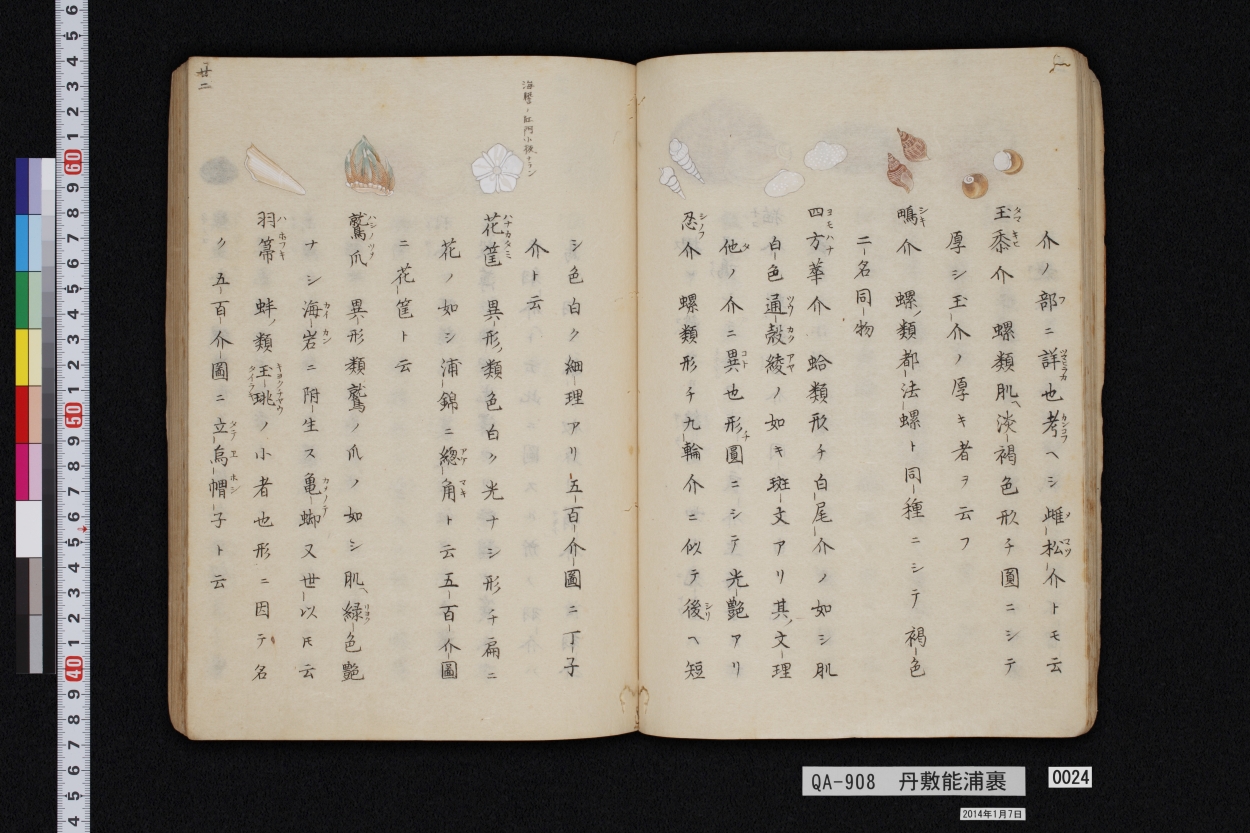 介ノ部ニ詳也考ヘシ雌松介トモ云
玉黍介 螺類肌淡褐色形チ圓ニシテ
厚シ玉介ノ厚キ者ヲ云フ
鴫介 螺ノ類都法螺ト同種ニシテ褐色
二名同物
四方華介 蛤類形チ白尾介ノ如シ肌
白色通殻綾ノ如キ斑文アリ其文理
他ノ介ニ異也形チ圓ニシテ光艶アリ
忍介 螺類形チ九輪介ニ似テ後ヘ短
シ色白ク細理アリ五百介圖ニ丁子
介ト云
海
花筐 異形ノ類色白ク光ナシ形チ扁ニ
花ノ如シ浦錦ニ總角ト云五百介圖
ニ花筐ト云
鷲爪 異形類鷲ノ爪ノ如シ肌緑色艶
ナシ海岩ニ附生ス亀䖦又世以㞮云
羽箒 蚌ノ類玉珧ノ小者也形ニ因テ名
ク五百介圖ニ立烏帽子ト云
廿二
QA-908 丹敷能浦裹
0024
2014年1月7日